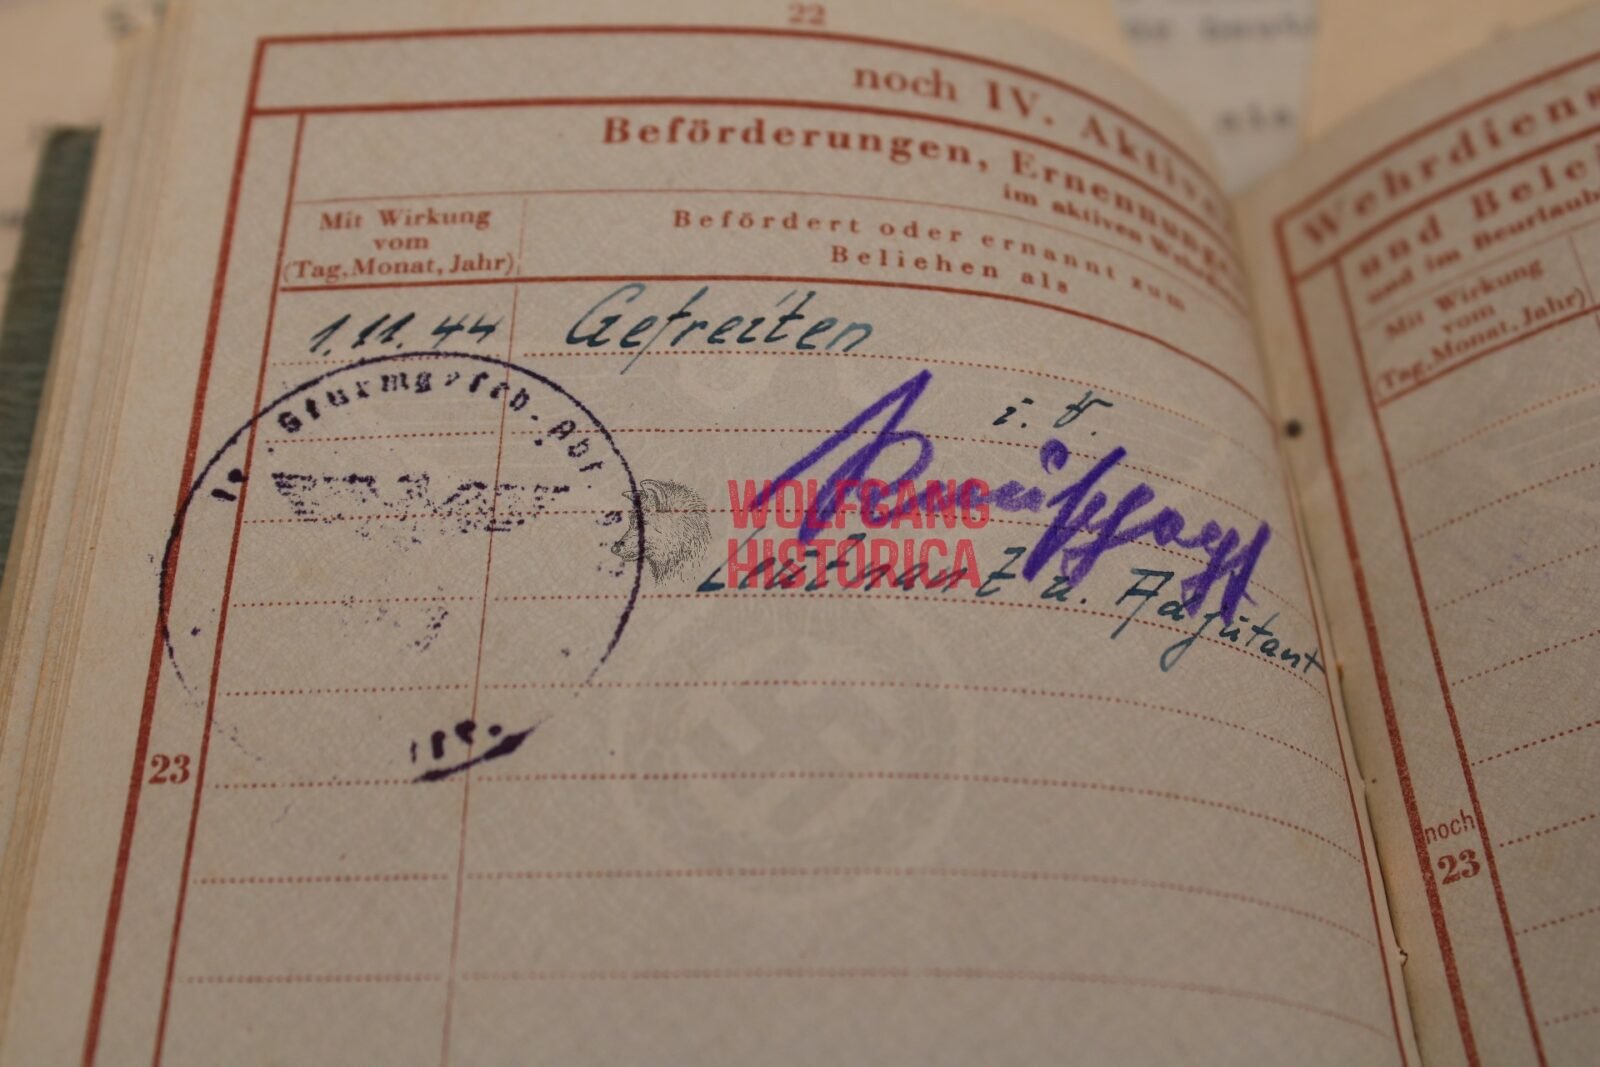 22
noch IV. Aktive
Beförderungen, Ernennungen
im aktiven
Mit Wirkung
vom
(Tag, Monat, Jahr)
Befördert oder ernannt zum
Beliehen als
1.11.44 Gefreiten
i. V.
Sturmgesch.-Abt.
WOLFGANG
HISTORICA
Leutnant u. Adjutant
23
Wehrdiens
und Belei
und im Beurlaub
Mit Wirkung
vom
(Tag, Monat, Jahr)
noch
23
als